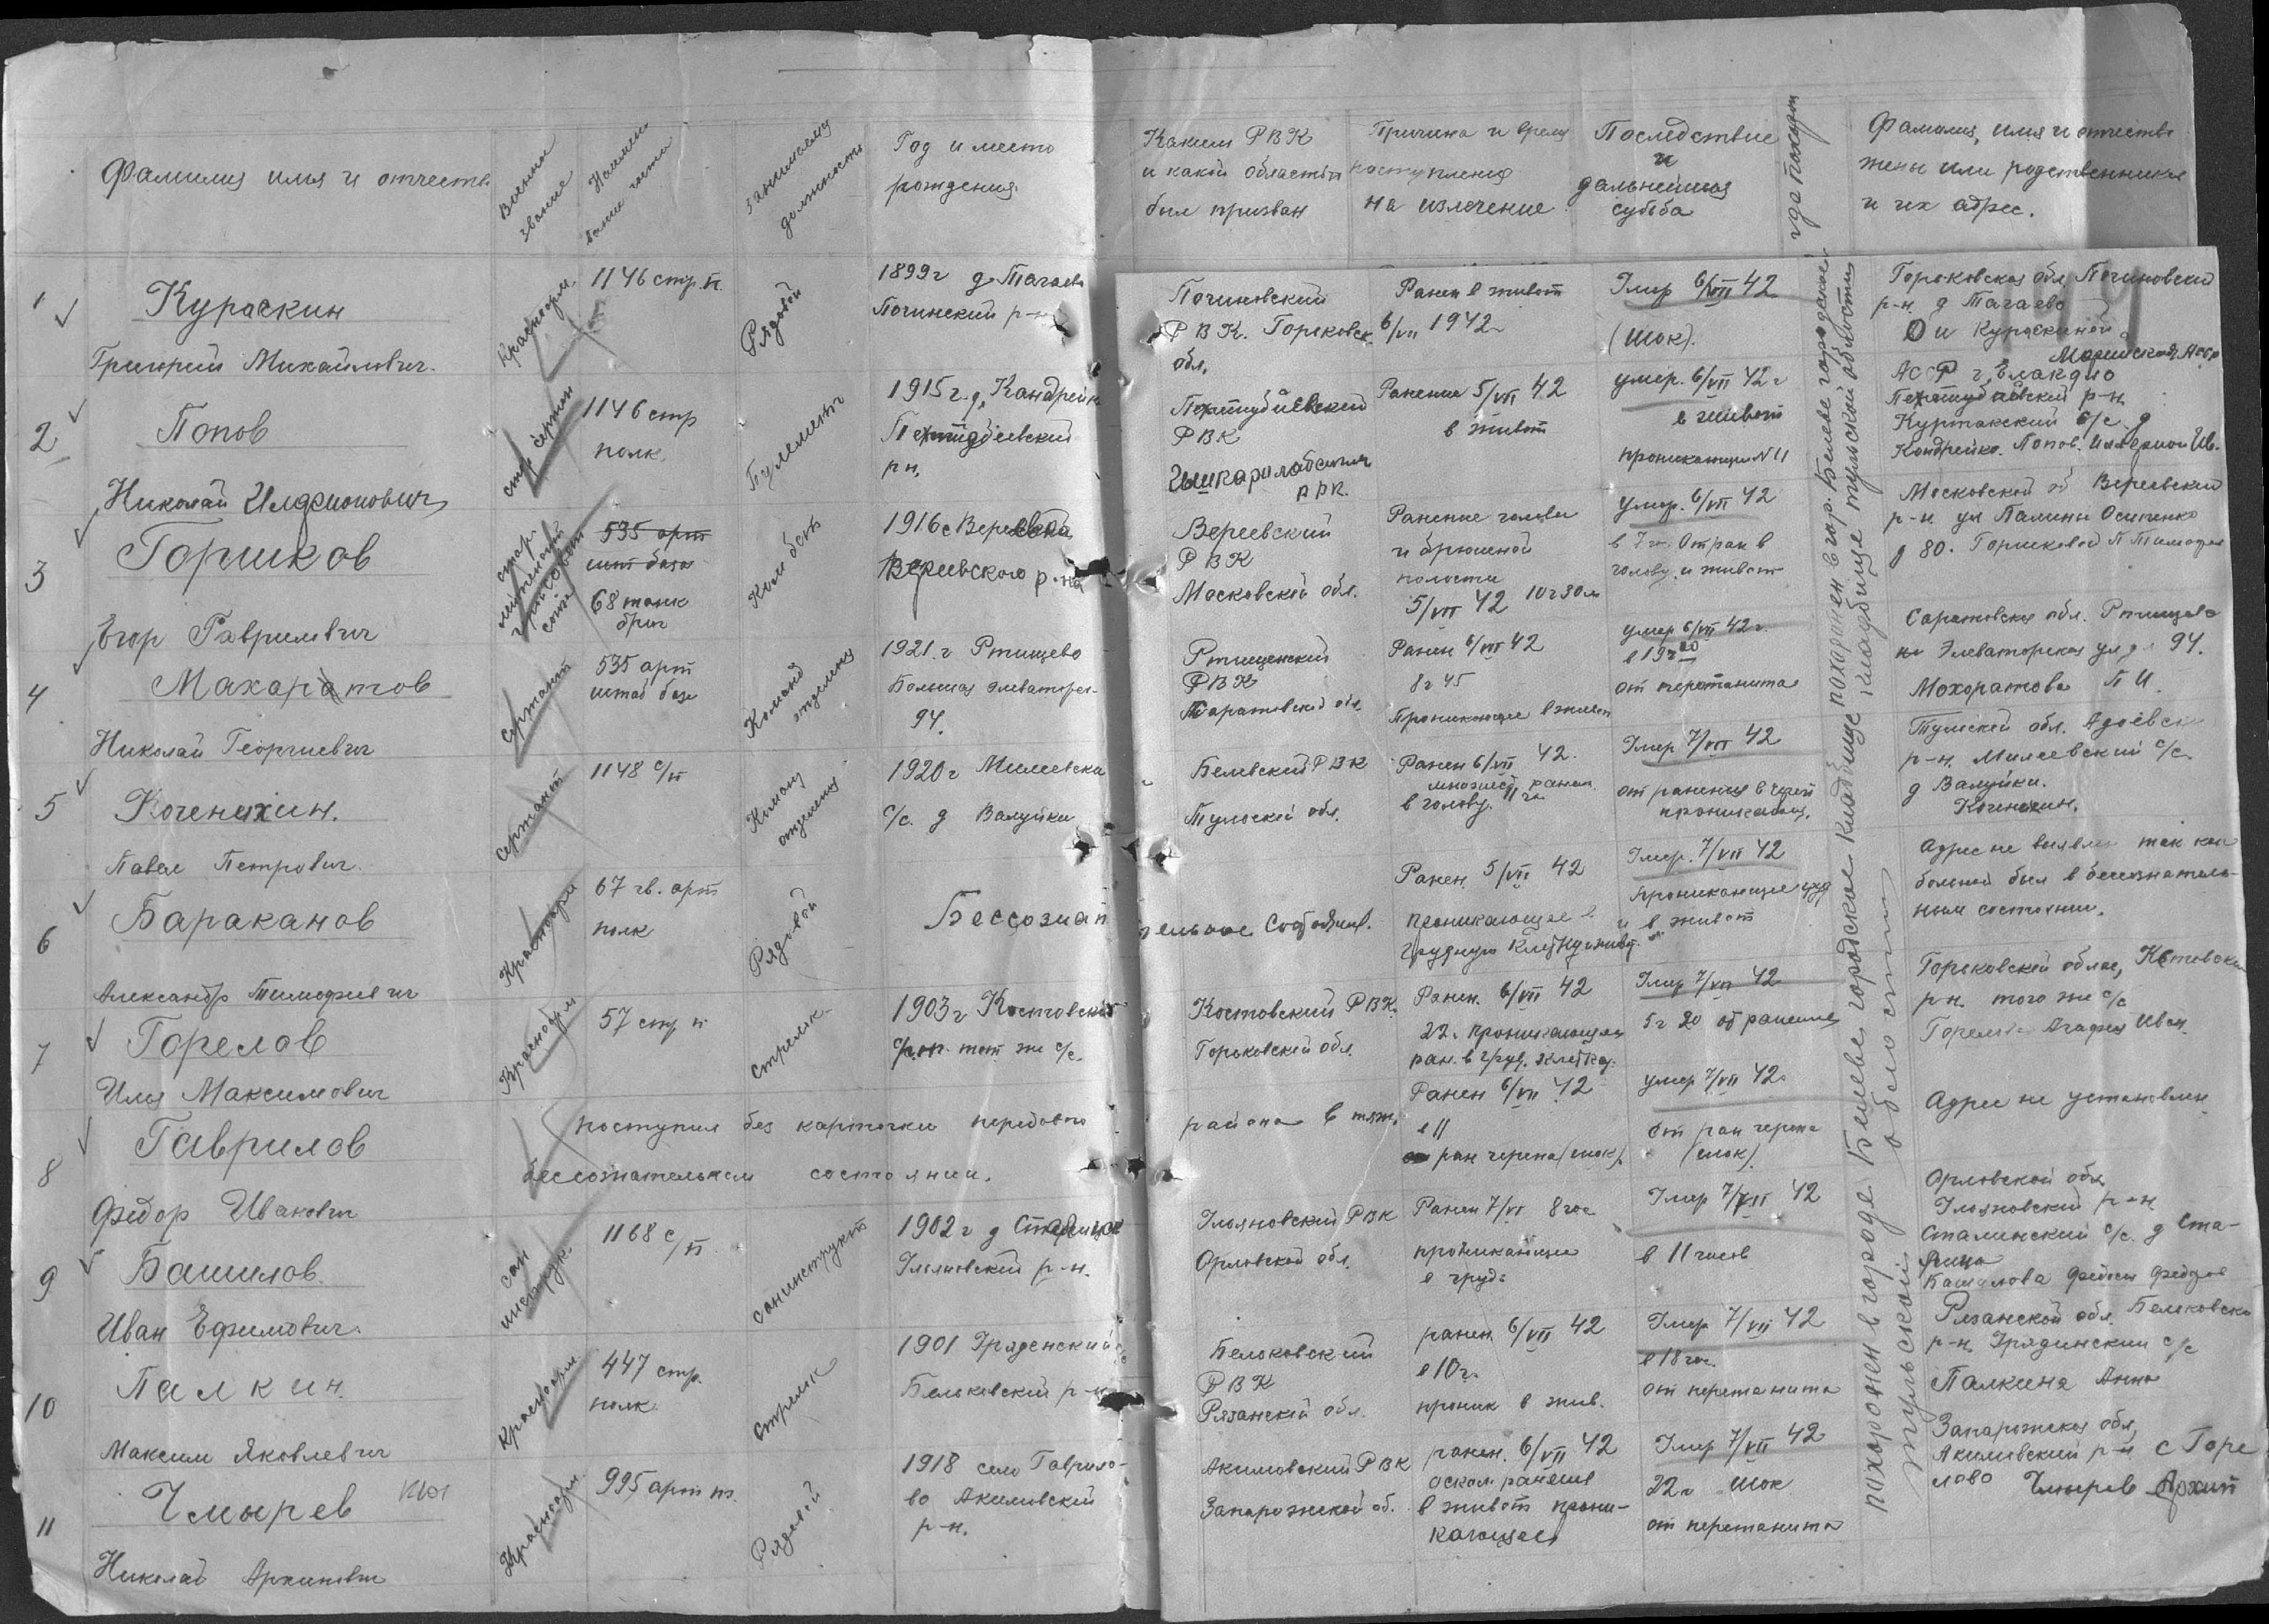 Фамилия имя и отчеств
Военное звание
Наимен вание части
занимаему должность
Год и место рождения
Каким РВК и какой областью был призван
Причина и время поступления на излечение
Последствие и дальнейшая судьба
где похорон
Фамилия, имя и отчество жены или родственников и их адрес.
1
Кураскин
Григорий Михайлович.
Красноарм.
1146 стр. п.
Рядовой
1899 г д. Тагаево
Починский р-н
Починовский
Р В К. Горьковск.
обл.
Ранен в живот
6/VII 1942 г
Умер 6/VII 42
(шок).
Горьковская обл Починовский
р-н. д Тагаево
Кураскиной
2
Попов
Николай Иларионович
1146 стр
полк.
1915 г. д.
р н.
РВК
Ранение 5/VII 42
в живот
умер. 6/VII 42 г
в живот
р-н.
Куртакский с/с д
Попов.
3
Горшков
Егор Гаврилович
535 арт
шт база
68 танк
бриг
Ком бат
1916 с Веревска
Вереевского р-на
Вереевский
Р В К
Московской обл.
Ранение головы
и брюшной
полости
5/VII 42 10 ч 30 м
Умер. 6/VII 42
в 7 ч. От ран в
голову и живот
Московской об Вереевский
р-н ул Палины Осипенко
д 80. Горшковой П
4
Махаратов
Николай Георгиевич
сержант
535 арт
штаб база
Команд отделения
1921. г Ртищево
Большая элеваторск-
94.
Ртищенский
РВК
Саратовской обл
Ранен 6/VII 42
8 ч 45
Проникающее в живот
умер 6/VII 42 г.
в 19 ч 00
от перетанита
Саратовская обл. Ртищево
Элеваторская ул д. 94.
Мохоратова П И.
5
Коченихин.
Павел Петрович.
сержант
1148 с/п
Команд отделения
1920 г Милеевска
с/с. д Валуйки
Белевский РВК
Тульской обл.
Ранен 6/VII 42.
в голову. 11 ч
Умер 7/VII 42
от ранения в череп
проникающ.
Тульской обл.
р-н. Милеевский с/с.
д Валуйки.
Коченихин.
6
Бараканов
Александр Тимофеевич
Красноарм
67 гв. арт
полк
Рядовой
Бессознательное состояние.
Ранен 5/VII 42
проникающее в
грудную клетку и живот.
Умер. 7/VII 42
проникающие груд
и в живот
Адрес не выявлен так как
больной был в бессознатель-
ном состоянии.
7
Горелов
Илья Максимович
Красноарм
57 стр п
стрелк-
1903 г Костовский
р.он. тот же с/с.
Костовский РВК.
Горьковской обл.
Ранен. 6/VII 42
22 ч. проникающее
ран. в груд. клетка.
Умер 7/VII 42
5 ч 20 от ранение
Горьковской област,
р-н. того же с/с
Горелова Агафия Иван.
8
Гаврилов
Федор Иванович
поступил без карточки передового района в тяж.
бессознательном состоянии.
Ранен 6/VII 42
в 11
ран черепа (шок).
умер 7/VII 42
от ран черепа
(шок)
Адрес не установлен
9
Башилов.
Иван Ефимович.
сан инструк.
1168 с/п
санинструкт
1902 г д Старица
Ульяновский р-н.
Ульяновский РВК
Орловской обл.
Ранен 7/VII 8 час
проникающие
в грудь
Умер 7/VII 42
в 11 часов
Орловской обл
Ульяновский р-н
Сталинский с/с. д Ста-
рица
10
Палкин.
Максим Яковлевич
Красноарм.
447 стр.
полк
стрелк
1901 Уряденский
Бельковский р-н
Бельковский
РВК
Рязанской обл.
ранен 6/VII 42
в 10 ч.
проник в жив.
Умер 7/VII 42
в 18 час.
от перетанита
Рязанской обл. Бельковско
р-н. Урядинский с/с
Палкина Анна
11
Чмырев
Николай Архипович
Красноарм.
995 арт п.
Рядовой
1918 село Гаврило-
во Акимовский
р-н.
Акимовский РВК
Запорожской об.
ранен. 6/VII 42
оскол ранение
в живот прони-
кающее
Умер 7/VII 42
22 ч шок
от перетанита
Запорожская обл,
Акимовский р-н с Горе
лово Чмырев Архип
похоронен в городе Белеве городское кладбище похоронен в гор. Белеве городской
тульской области кладбище тульской области